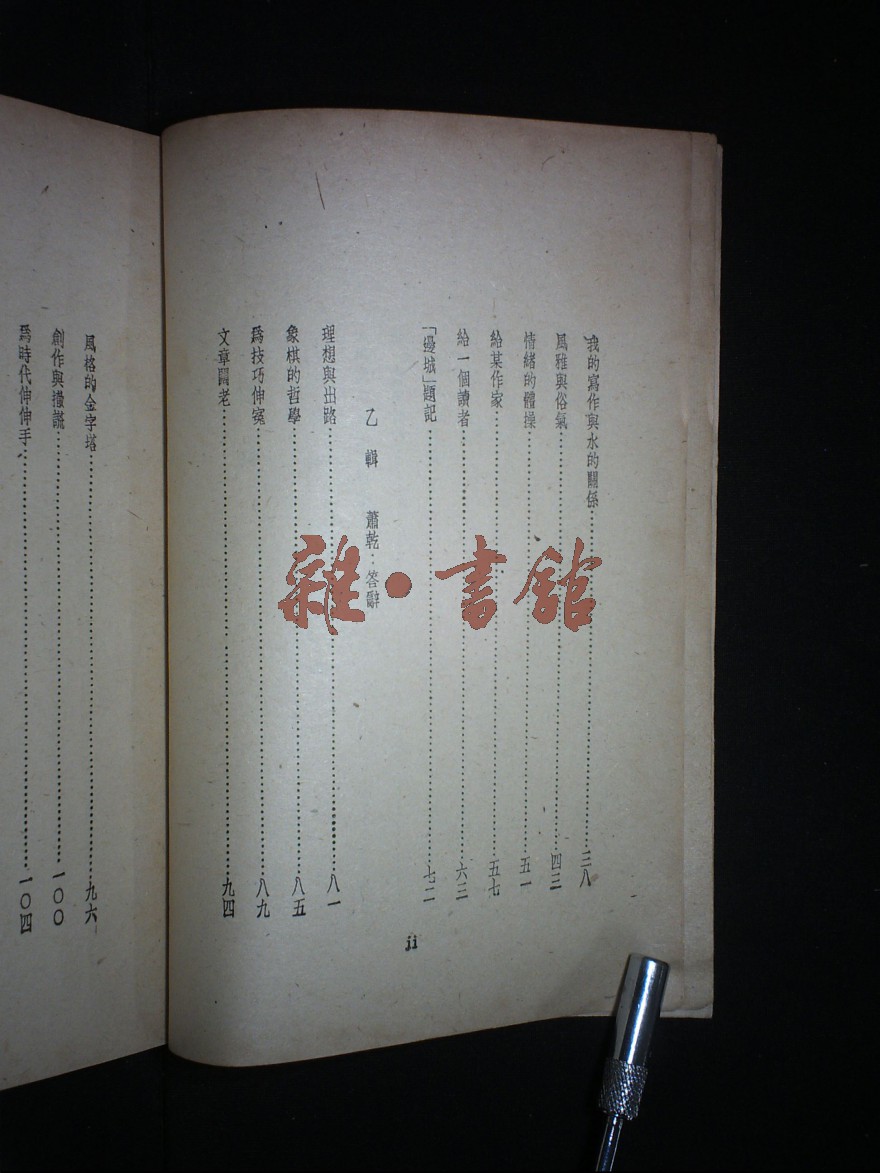 我的寫作與水的關係……三八
風雅與俗氣……四三
情緒的體操……五一
給某作家……五七
給一個讀者……六三
「邊城」題記……七二
乙輯 蕭乾：答辭
理想與出路……八一
象棋的哲學……八五
爲技巧伸冤……八九
文章圓老……九四
ii
風格的金字塔……九六
創作與撒謊……一〇〇
爲時代伸伸手……一〇四
雜·書館